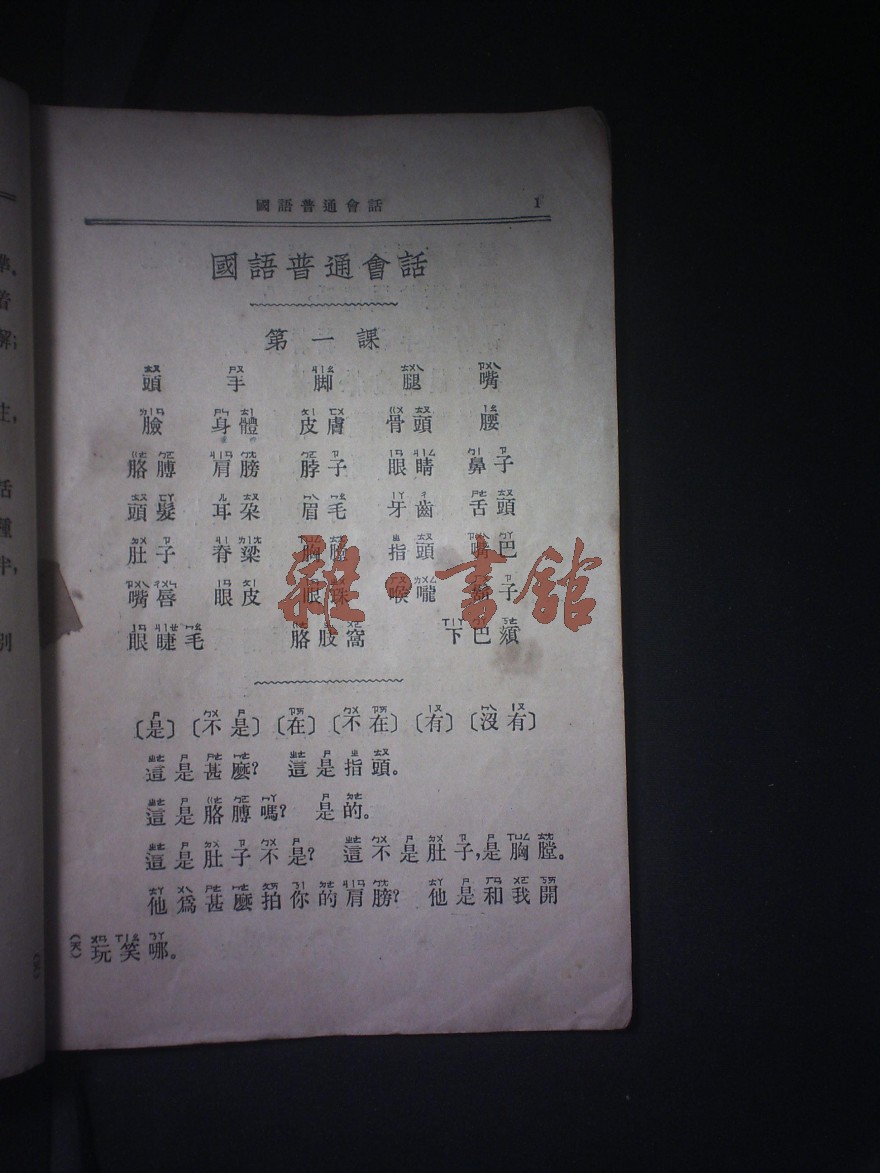 國語普通會話 1
國語普通會話
第一課
頭 手 脚 腿 嘴
臉 身體 皮膚 骨頭 腰
胳膊 肩膀 脖子 眼睛 鼻子
頭髮 耳朶 眉毛 牙齒 舌頭
肚子 脊梁 胸膛 指頭 嘴巴
嘴唇 眼皮 眼珠 喉嚨 子
眼睫毛 胳肢窩 下巴
〔是〕〔不是〕〔在〕〔不在〕〔有〕〔沒有〕
這是甚麽? 這是指頭。
這是胳膊嗎? 是的。
這是肚子不是? 這不是肚子,是胸膛。
他爲甚麽拍你的肩膀? 他是和我開
玩笑哪。
雜·書館